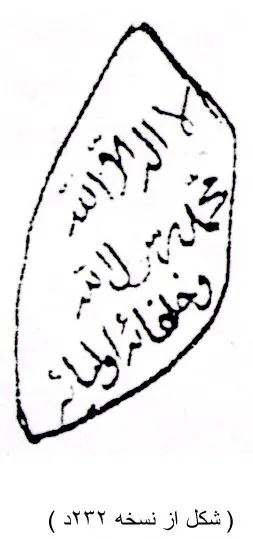 لا اله الا الله
محمد رسول الله
و خلفائه اوليائه
( شکل از نسخه ۲۳۲د )